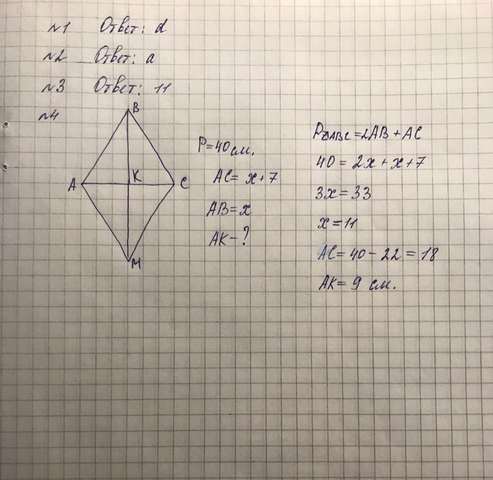 №1 Ответ: d
№2 Ответ: a
№3 Ответ: 11
№4
B
A
K
C
M
P=40см.
AC=x+7
AB=x
AK-?
P△ABC=2AB+AC
40=2x+x+7
3x=33
x=11
AC=40-22=18
AK=9 см.